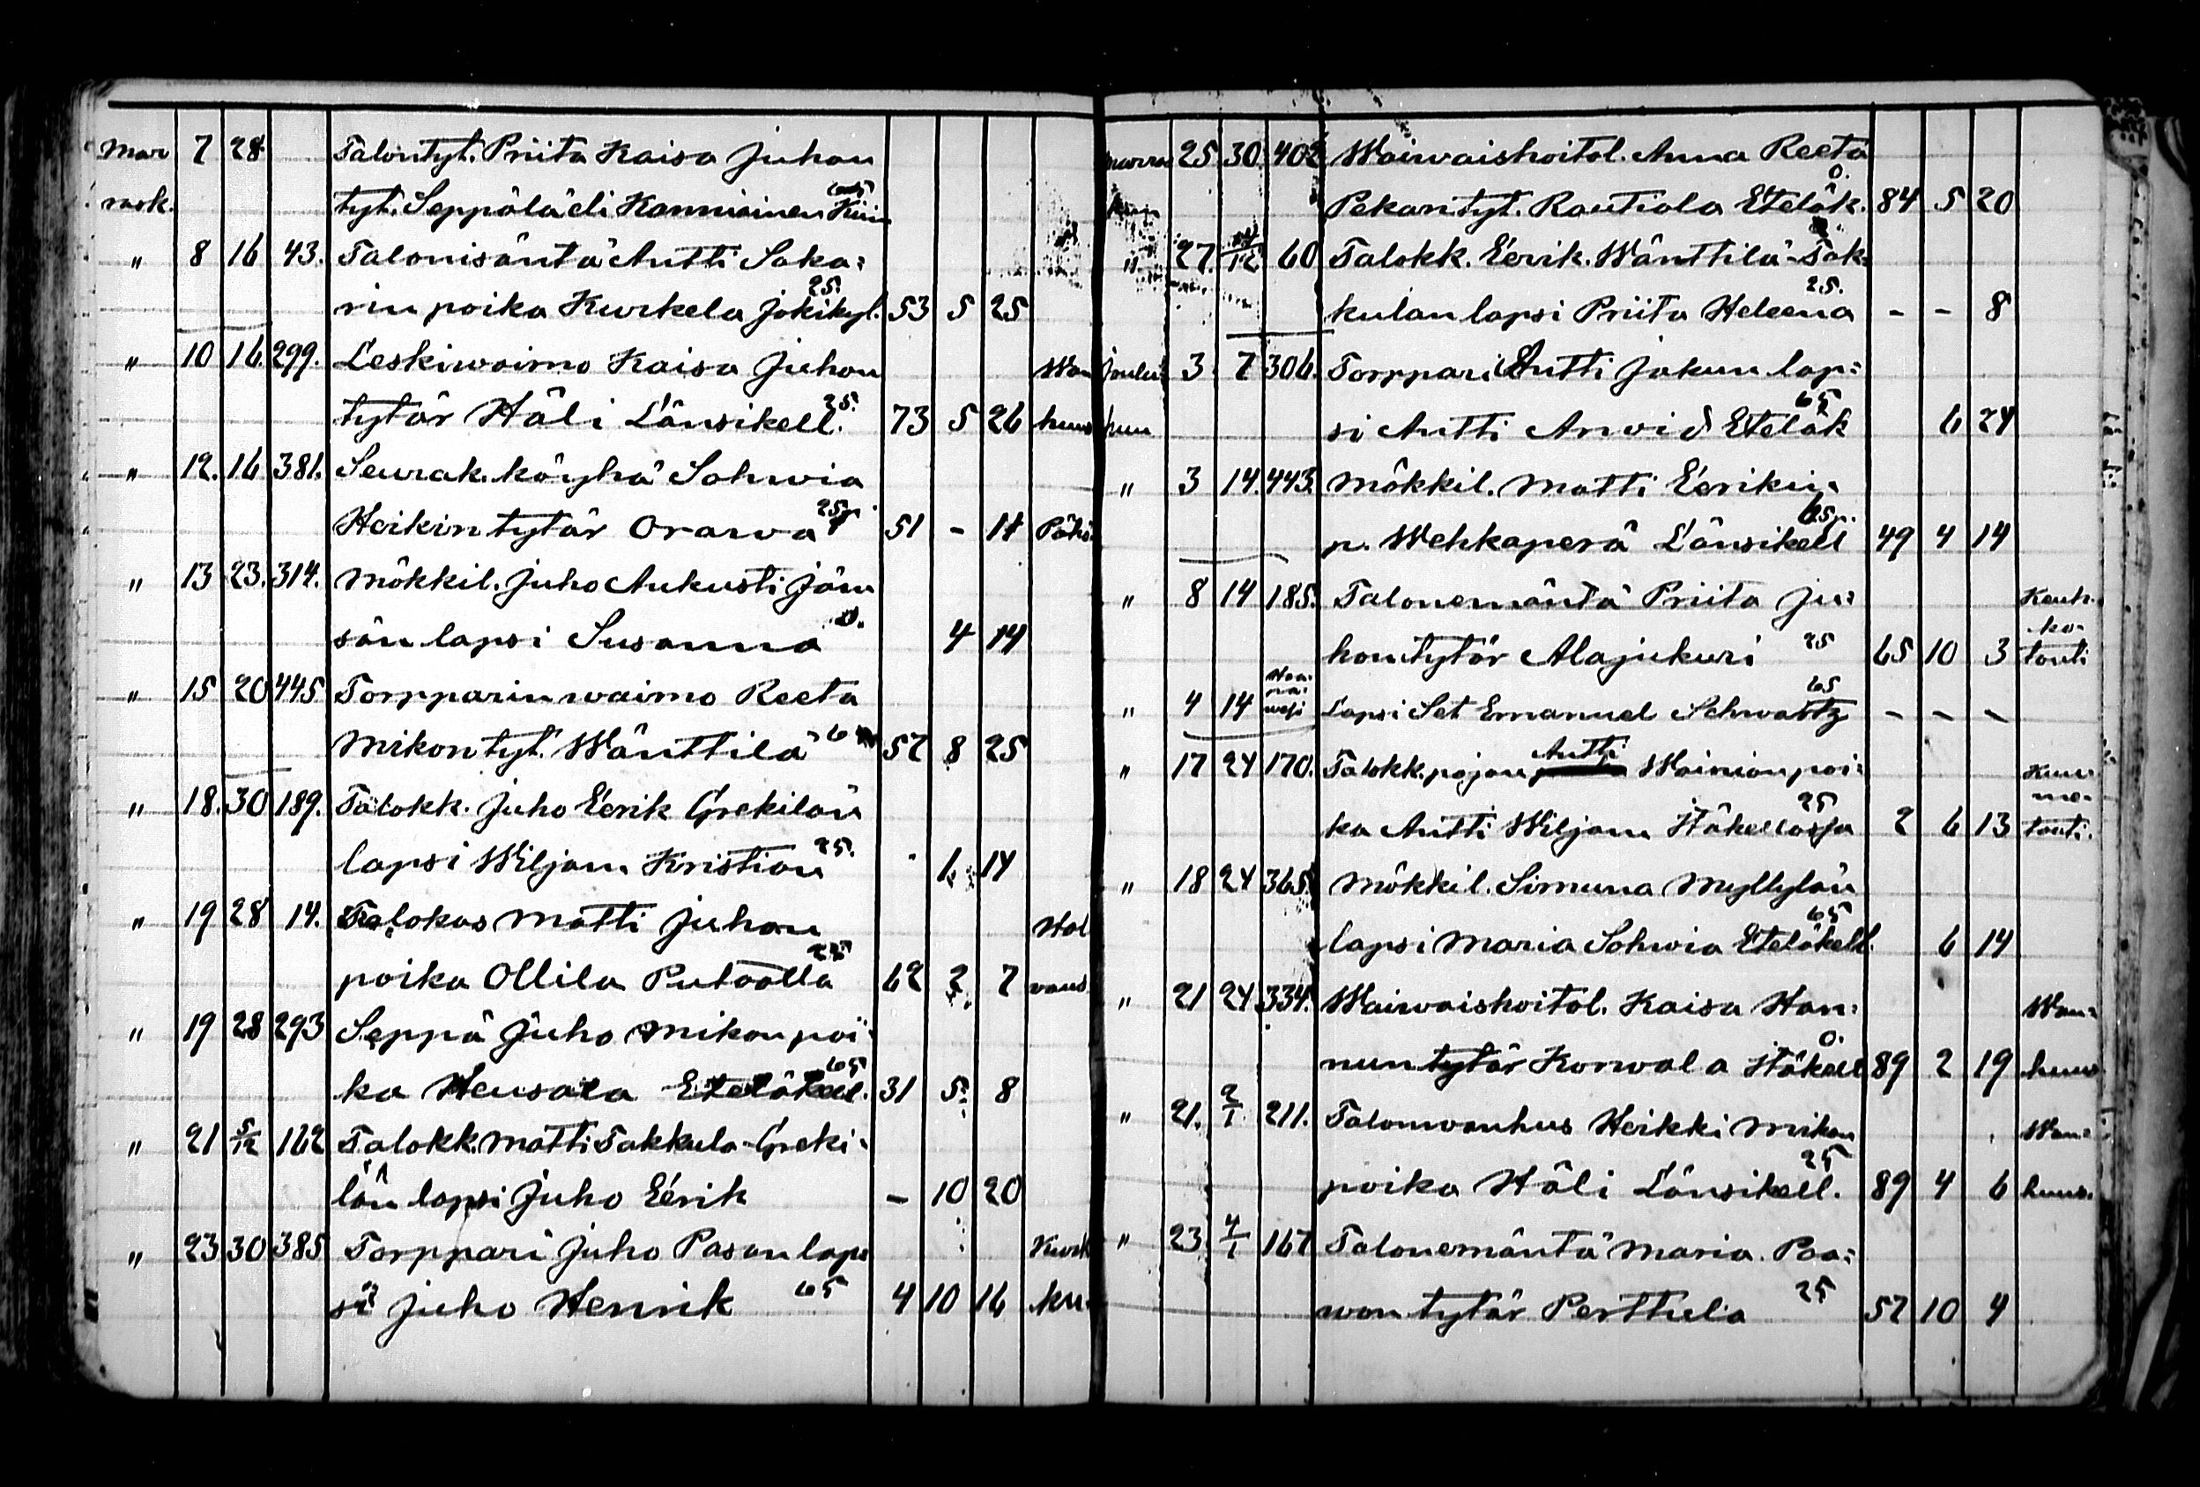 Mar 7 28 Talontyt. Priita Kaisa Juhon
rask. tyt. Seppälä eli Kanniainen
" 8 16 43. Talonisäntä Antti Saka:
rin poika Kurkela Jokikyl. 25. 53 5 25
" 10 16 299. Leskiwaimo Kaisa Juhon Wan
tytär Häli Länsikell. 25. 73 5 26 huus
" 12. 16 381. Seurak. köyhä Sohwia
Heikin tytär Orawa 25 51 - 11 Pöhö
" 13 23. 314. Mökkil. Juho Aukusti Jäm
sän lapsi Susanna 0. 4 14
" 15 20 445 Torpparin waimo Reeta
Mikon tyt. Wänttilä 57 8 25
" 18. 30 189. Talokk. Juho Eerik Grekilän
lapsi Wiljam Kristian 25. 1 14
" 19 28 14. Talokas Matti Juhon Hal
poika Ollila Putaalla 25 62 2 7 vaus
" 19 28 293 Seppä Juho Mikon poi:
ka Heusala Eteläkell. 65 31 5 8
" 21 5/12 162 Talokk. Matti Takkula-Greki:
län lapsi Juho Eerik - 10 20
" 23 30 385 Torppari Juho Pason laps Kurk
si Juho Henrik 65 4 10 16 ku.
marras 25. 30. 402 Waiwaishoitol. Anna Reeta
kuu Pekantyt. Rautiola Eteläk. 0. 84 5 20
" 27. 14/12 60 Talokk. Eerik. Wänttilä-Tak:
kulan lapsi Priita Heleena 25. - - 8
Joulu 3 7 306. Torppari Antti Jakun lap:
kuu si Antti Arvid Eteläk 65 6 24
" 3 14. 443. Mökkil. Matti Eerikin
p. Wehkaperä Länsikell 65 49 4 14
" 8 14 185. Talonemäntä Priita Ju: Keuh
ko-
hontytär Alajukuri 25 65 10 3 touti
" 4 14 Haa
pa:
wesi Lapsi Set Emanuel Schwartz 65 - - -
" 17 24 170. Talokk. pojan Antti Wainion poi: Kuu
me-
ka Antti Wiljam Itäkell 25 2 6 13 touti.
" 18 24 365. Mökkil. Simuna Myllylän
lapsi Maria Sohwia Eteläkell. 65 6 14
" 21 24 334. Waiwaishoitol. Kaisa Han: Wan:
nun tytär Korwala Itäkell 0. 89 2 19 huus
" 21. 2/1 211. Talonwanhus Heikki Mikon Wan:
poika Häli Länsikell. 25 89 4 6 huus.
" 23 4/1 167 Talonemäntä Maria Paa:
won tytär Perttula 25 57 10 4